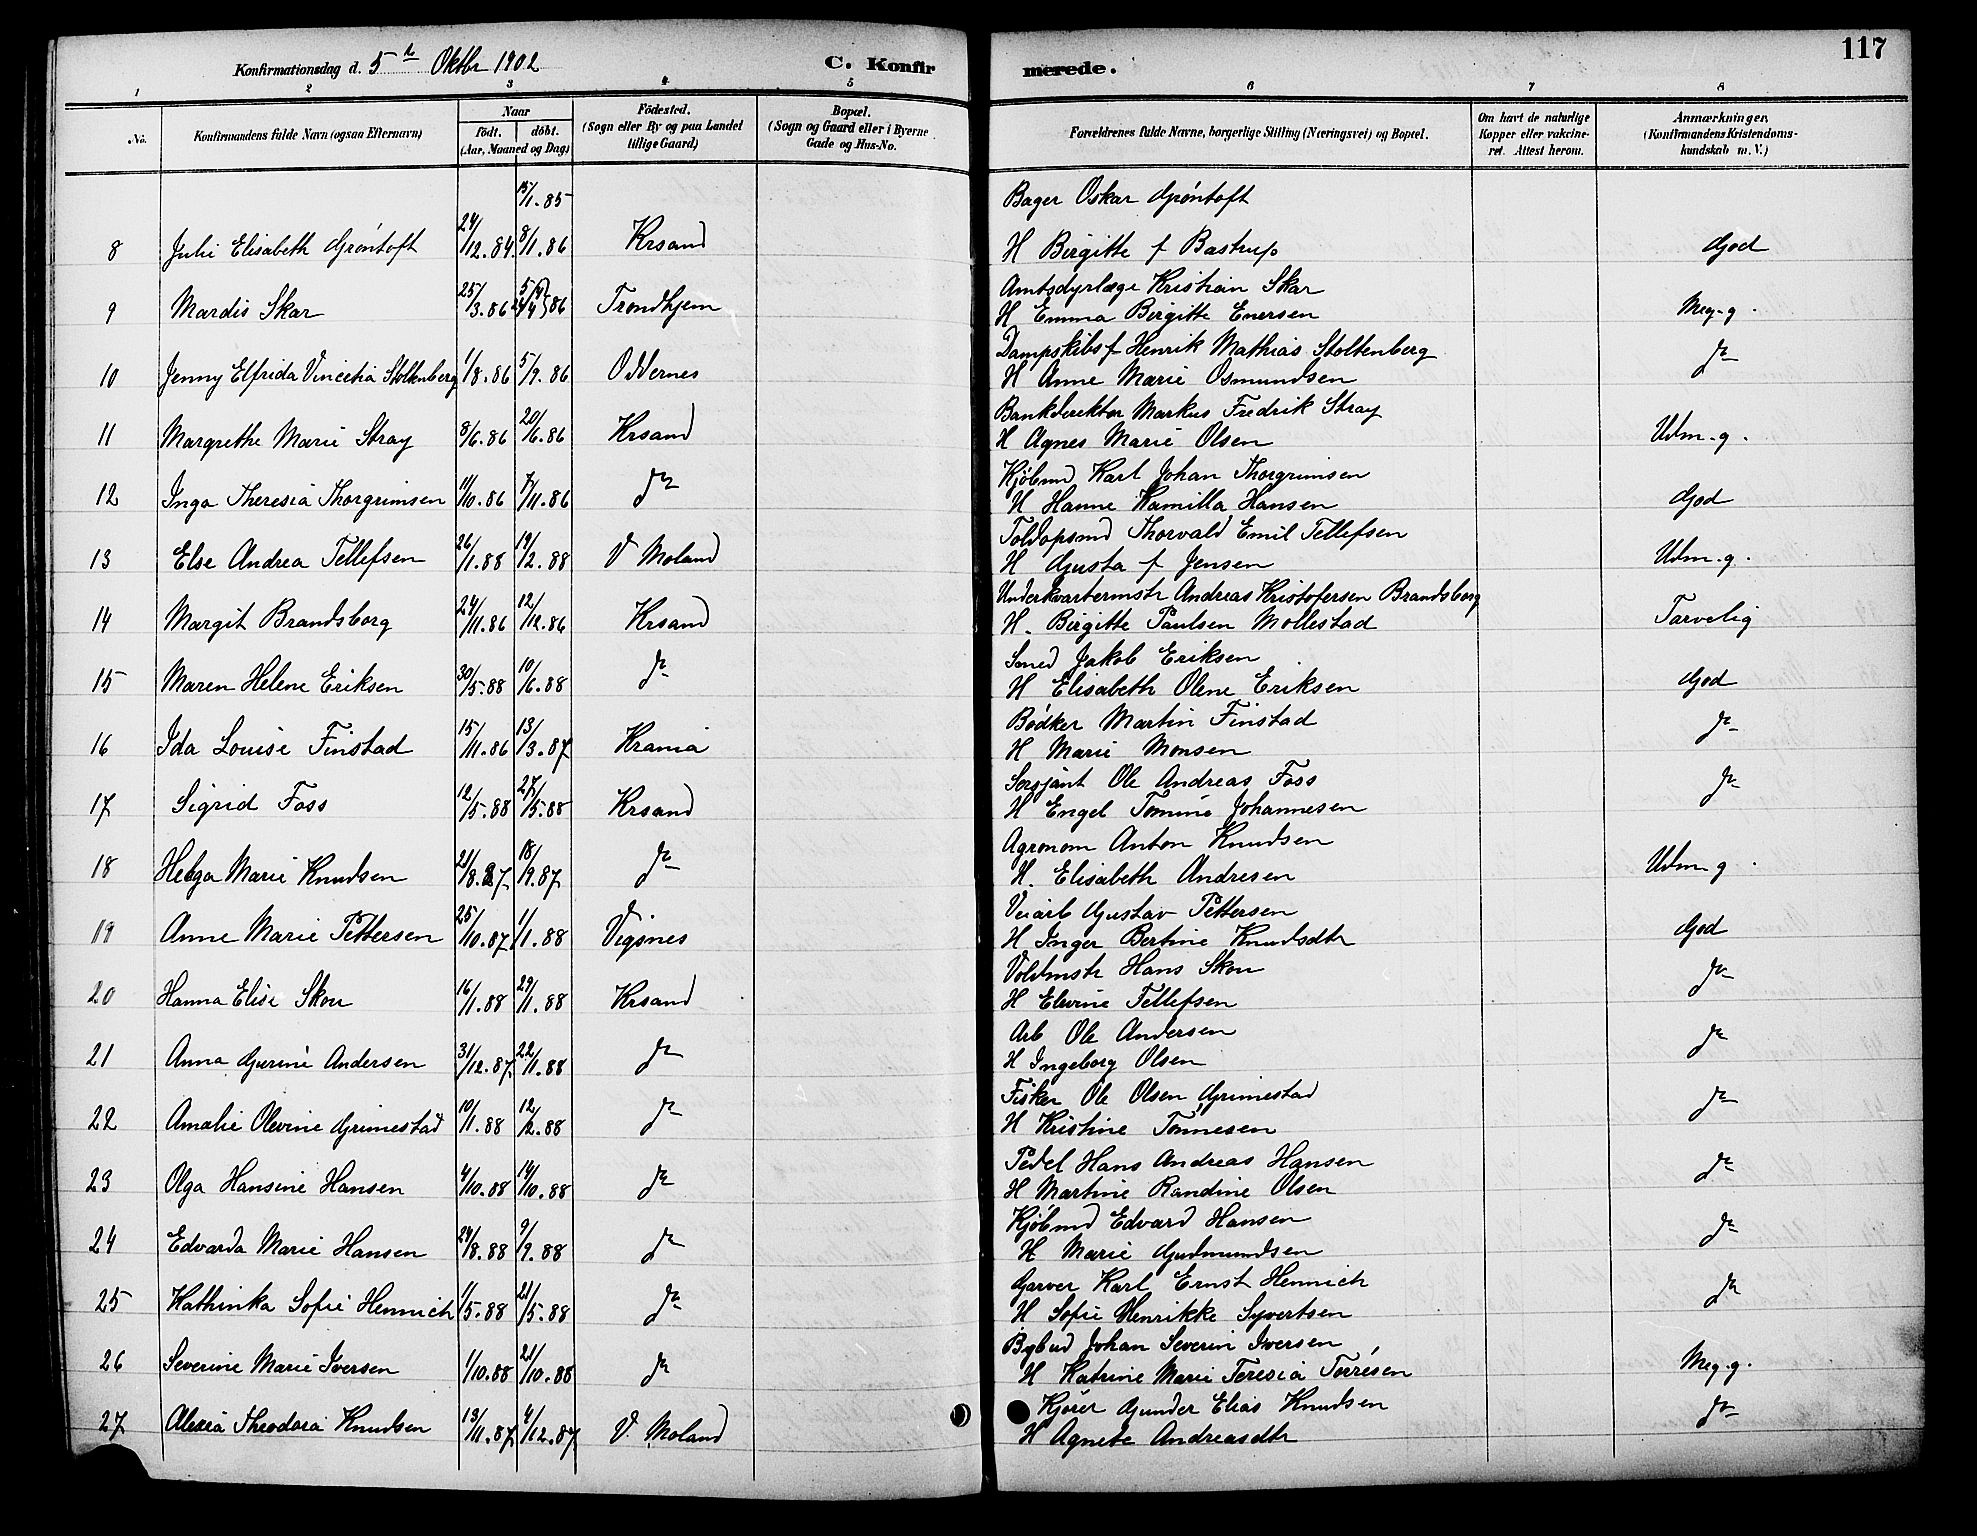 117
Konfirmationsdag d. 5te Oktbr 1902 C. Konfirmerede.
1 2 3 4 5 6 7 8
No. Konfirmandens fulde Navn (ogsaa Efternavn) Naar födt. döbt. (Aar, Maaned og Dag) Födested. (Sogn eller By og paa Landet tillige Gaard) Bopæl. (Sogn og Gaard eller i Byerne Gade og Hus-No. Forældrenes fulde Navne, borgerlige Stilling (Næringsvei) og Bopæl. Om havt de naturlige Kopper eller vakcineret. Attest herom. Anmærkninger, (Konfirmandens Kristendomskundskab m. V.)
15/1.85 Bager Oskar Grøntoft
8 Julie Elisabeth Grøntoft 24/12.84. 8/1.86 Krsand H Birgitte f Bastrup God
Amtsdyrlæge Kristian Skar
9 Mardis Skar 25/3.86 86 Trondhjem H Emma Birgitte Enersen Meg. g.
Dampskibsf Henrik Mathias Stoltenberg
10 Jenny Elfrida Vincetia Stoltenberg 1/8.86 5/9.86 Oddernes H Anne Marie Osmundsen do
Bankdirektør Markus Fredrik Stray
11 Margrethe Marie Stray 8/6.86 20/6.86 Krsand H Agnes Marie Olsen Udm. g.
Kjøbmd Karl Johan Thorgrimsen
12 Inga Theresia Thorgrimsen 11/10.86 7/11.86 do H Hanne Kamilla Hansen God
Toldopsmd Thorvald Emil Tellefsen
13 Else Andrea Tellefsen 26/1.88 19/2.88 V Moland H Gusta f Jensen Udm. g.
Underkvartermstr Andreas Kristofersen Brandsborg
14 Margit Brandsborg 24/11.86 12/12.86 Krsand H. Birgitte Paulsen Mollestad Tarvelig
Smed Jakob Eriksen
15 Maren Helene Eriksen 30/5.88 10/6.88 do H Elisabeth Olene Eriksen God
Bødker Martin Finstad
16 Ida Louise Finstad 15/11.86 13/3.87 Krania H Marie Monsen do
Sersjant Ole Andreas Foss
17 Sigrid Foss 12/5.88 27/5.88 Krsand H Engel Tomine Johannesen do
Agronom Anton Knudsen
18 Helga Marie Knudsen 21/8.87 18/9.87 do H. Elisabeth Andresen Udm. g.
Veiarb Gustav Pettersen
19 Anne Marie Pettersen 25/10.87 1/1.88 Vigsnes H Inger Bertine Knudsdtr God
Voldmstr Hans Skou
20 Hanna Elise Skou 16/1.88 29/1.88 Krsand H Elevine Tellefsen do
Arb Ole Andersen
21 Anna Gurine Andersen 31/12.87 22/1.88 do H Ingeborg Olsen do
Fisker Ole Olsen Grimestad
22 Amalie Olevine Grimestad 10/1.88 12/2.88 do H Kristine Tønnesen do
Pedel Hans Andreas Hansen
23 Olga Hansine Hansen 4/10.88 14/10.88 do H Martine Randine Olsen do
Kjøbmd Edvard Hansen
24 Edvarda Marie Hansen 24/8.88 9/9.88 do H Marie Gudmundsen do
Garver Karl Ernst Hennich
25 Kathinka Sofie Hennich 1/5.88 21/5.88 do H Sofie Henrikke Syvertsen do
Bybud Johan Severin Iversen
26 Severine Marie Iversen 1/10.88 21/10.88 do H Katrine Marie Teresia Torresen Meg. g.
Kjører Gunder Elias Knudsen
27 Alexia Theodora Knudsen 13/11.87 4/12.87 V. Moland H Agnete Andreasdtr do